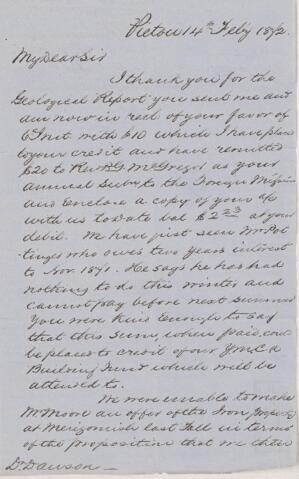 Pictou 14th Feby 1872.
My Dear Sir
I thank you for the
Geological Report you sent me and
am now in rect of your favor of
6 Inst with $10 which I have placed
to your credit and have remitted
$20 to Rev P G McGregor as your
annual Subn to the Foreign Mission
and Enclose a copy of your a/c
with us to Date bal $2 23 at your
debit. We have just seen Mr Pot
tinger who owes two years interest
to Nov. 1871. He says he has had
nothing to do this winter and
cannot pay before next summer
You were kind Enough to say
that this sum, when paid, could
be placed to credit of our YMCA
Building Fund which will be
attended to.
We were unable to make
Mr Moore an offer of the Iron property
at Merigomish last Fall in terms
of the proposition that we
Dr. Dawson